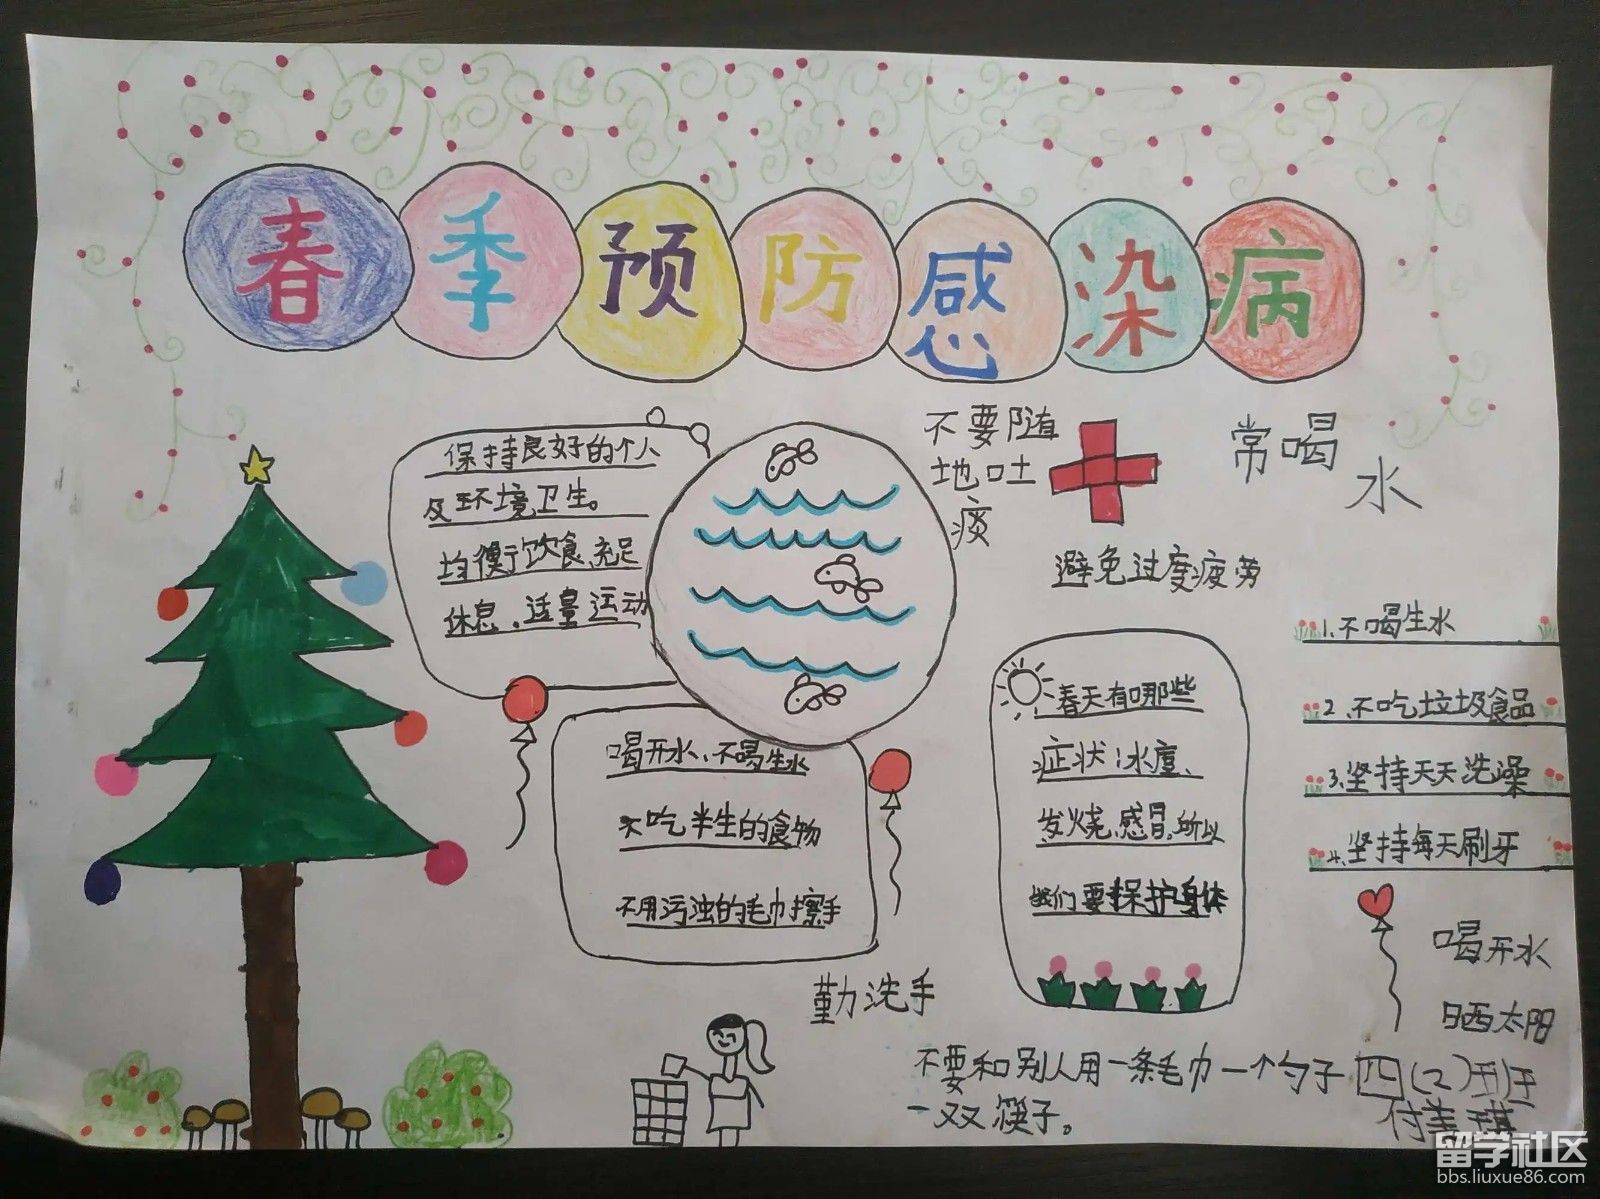 春季预防感染病
保持良好的个人
及环境卫生。
均衡饮食、充足
休息、适量运动
喝开水、不喝生水
不吃半生的食物
不用污浊的毛巾擦手
不要随
地吐
痰
常喝
水
避免过度疲劳
春天有哪些
症状：水痘、
发烧、感冒，所以
我们要保护身体
1、不喝生水
2、不吃垃圾食品
3、坚持天天洗澡
4、坚持每天刷牙
喝开水
晒太阳
勤洗手
不要和别人用一条毛巾一个勺子
一双筷子。
四(2)班
付美琪
留学社区
bbs.liuxue86.com